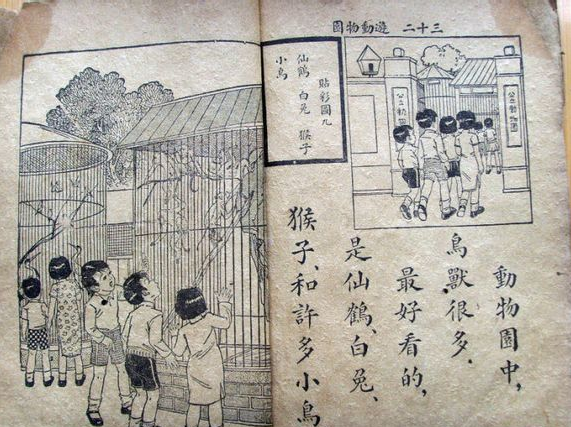 三十二 遊動物園
公立動物園
貼彩圖九
仙鶴 白兔 猴子
小鳥
動物園中，
鳥獸很多．
最好看的，
是仙鶴、白兔、
猴子、和許多小鳥